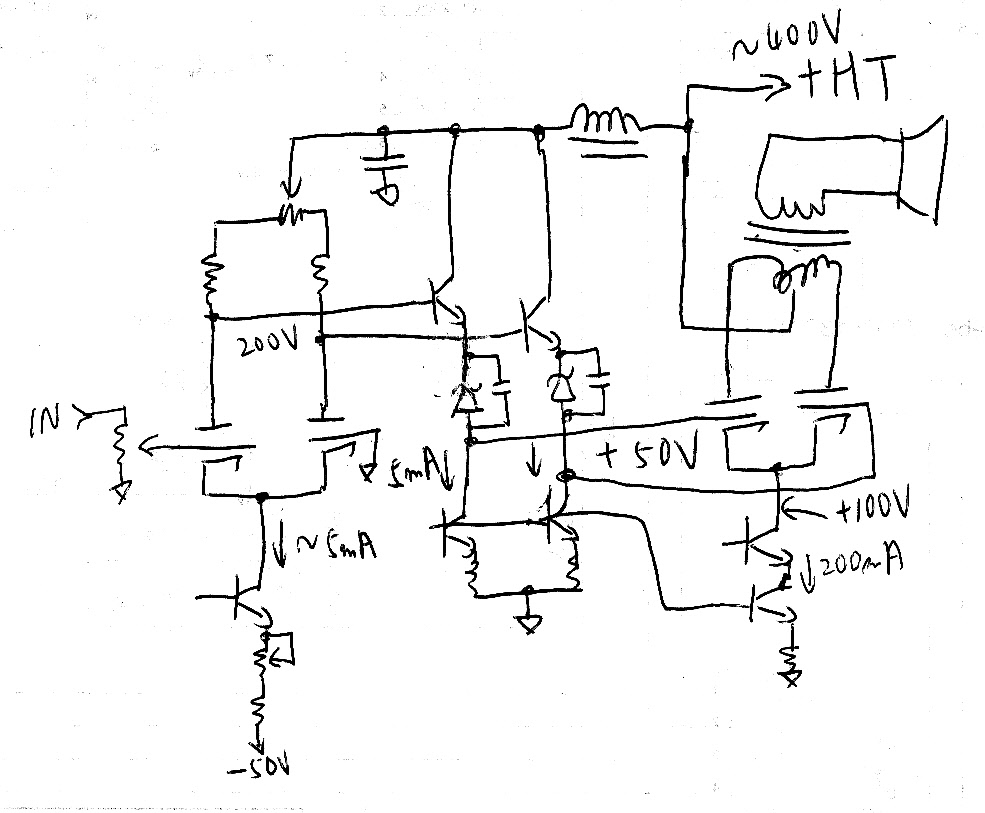 ~400V
+HT
200V
IN
5mA
+50V
+100V
~5mA
200mA
-50V